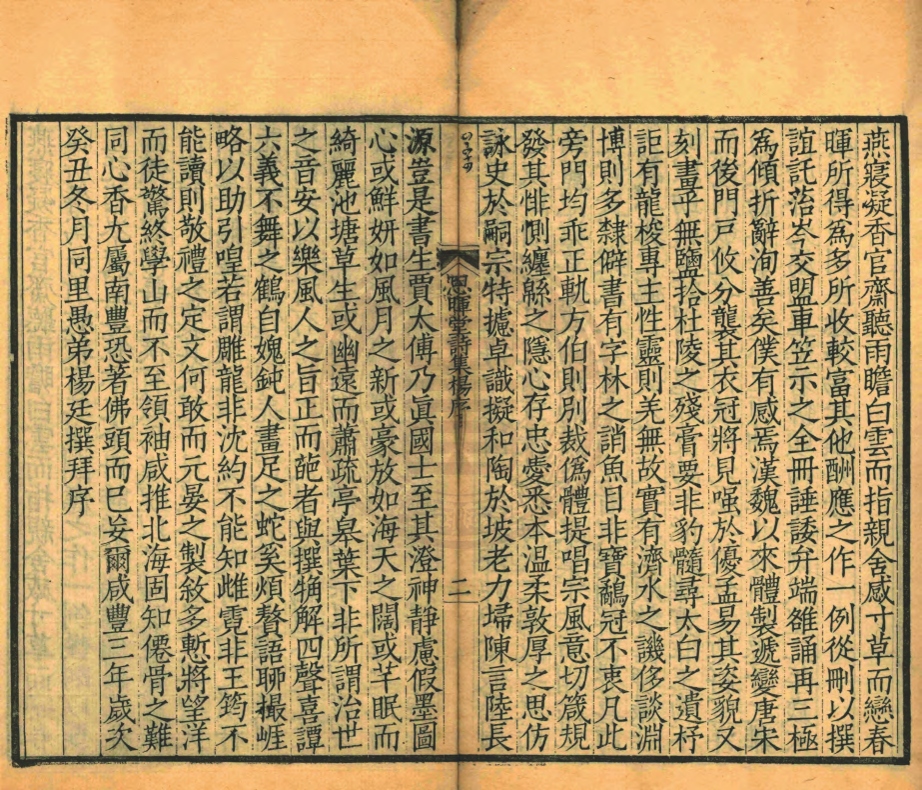 燕寢凝香官齋聽雨瞻白雲而指親舍感寸草而戀春
暉所得爲多所收較富其他酬應之作一例從刪以撰
誼託落岑交盟車笠示之全冊諈諉弁端雒誦再三極
爲傾折辭洵善矣僕有感焉漢魏以來體製遞變唐宋
而後門戸攸分襲其衣冠將見嗤於優孟易其姿貌又
刻畫乎無鹽拾杜陵之殘膏要非豹髓尋太白之遺杼
詎有龍梭專主性靈則羌無故實有濟水之譏侈談淵
博則多隸僻書有字林之誚魚目非寶鷸冠不衷凡此
旁門均乖正軌方伯則別裁僞體提唱宗風意切箴規
發其悱惻纏緜之隱心存忠愛悉本温柔敦厚之思仿
詠史於嗣宗特攄卓識擬和陶於坡老力埽陳言陸長
思暉堂詩集楊序
二
源豈是書生賈太傅乃眞國士至其澄神靜慮假墨圖
心或鮮妍如風月之新或豪放如海天之闊或芊眠而
綺麗池塘草生或幽遠而蕭疏亭皋葉下非所謂治世
之音安以樂風人之旨正而葩者與撰觕解四聲喜譚
六義不舞之鶴自媿鈍人畫足之蛇奚煩贅語聊撮崕
略以助引喤若謂雕龍非沈約不能知雌霓非王筠不
能讀則敬禮之定文何敢而元晏之製敘多慙將望洋
而徒驚終學山而不至領袖咸推北海固知僊骨之難
同心香九屬南豐恐著佛頭而已妄爾咸豐三年歲次
癸丑冬月同里愚弟楊廷撰拜序